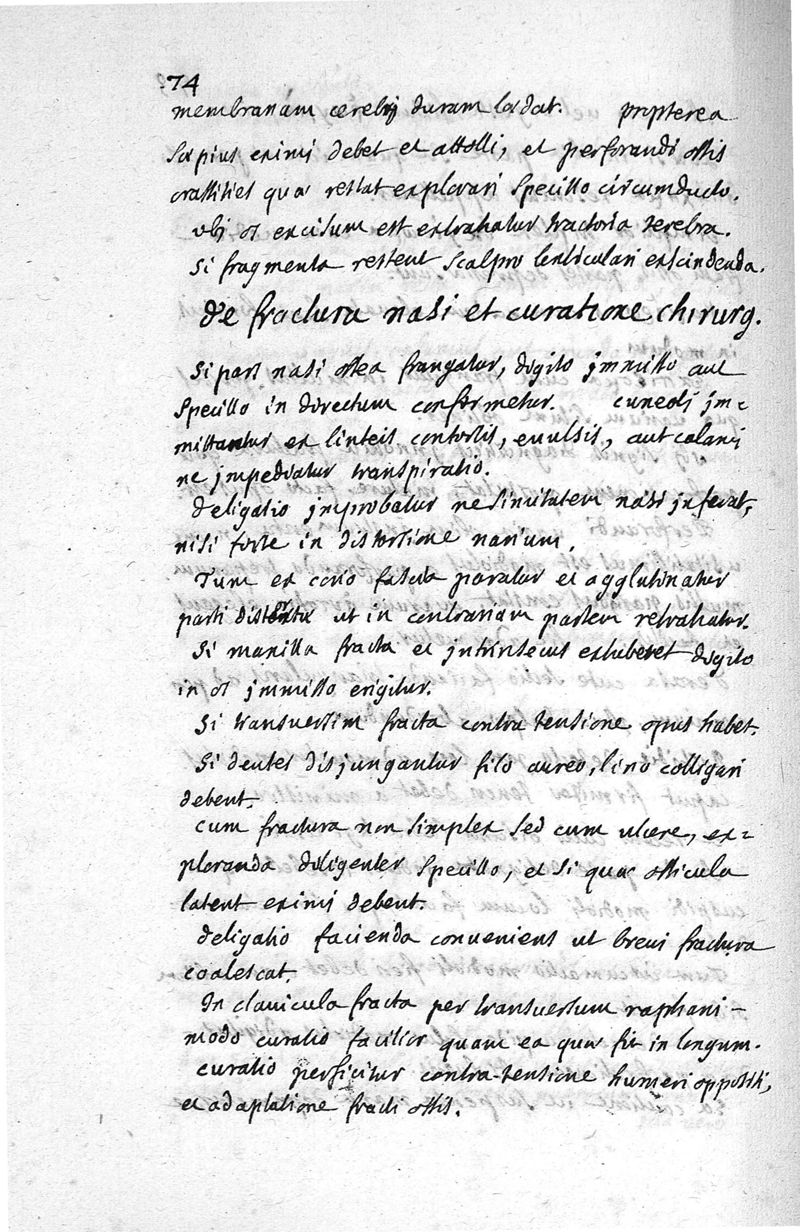 74
membranam cerebrj duram lædat. propterea
sæpius eximi debet et attolli, et perforandi ossis
crassities quæ restat explorari specillo circumducto.
vbj os excisum est extrahatur tractoria terebra.
si fragmenta restent scalpro lenticulari exscindenda.
de fractura nasi et curatione chirurg.
si pars nasi ossea frangatur, digito jmmisso aut
specillo in directum conformetur. cuneoli jm=
mittantur ex linteis contortis, euulsis, aut calami
ne jmpediatur transpiratio.
deligatio jmprobatur ne simitatem nasi jnferat,
nisi forte in distorsione narium,
Tum ex corio fascia paratur et agglutinatur
parti distortæ ut in contrariam partem retrahatur.
si maxilla fracta et jntrinsecus exhuberet digito
in os jmmisso erigitur.
si transuersim fracta contra tensione opus habet.
si dentes disjungantur filo aureo, lino colligari
debent.
cum fractura non simplex sed cum ulcere, ex=
ploranda diligenter specillo, et si quæ ossicula
latent eximi debent.
deligatio facienda conueniens ut breui fractura
coalescat.
In clauicula fracta per transuersum raphani-
modo curatio facilior quam ea quæ fit in longum.
curatio perficitur contra-tensione humeri oppositi,
et adaptatione fracti ossis.